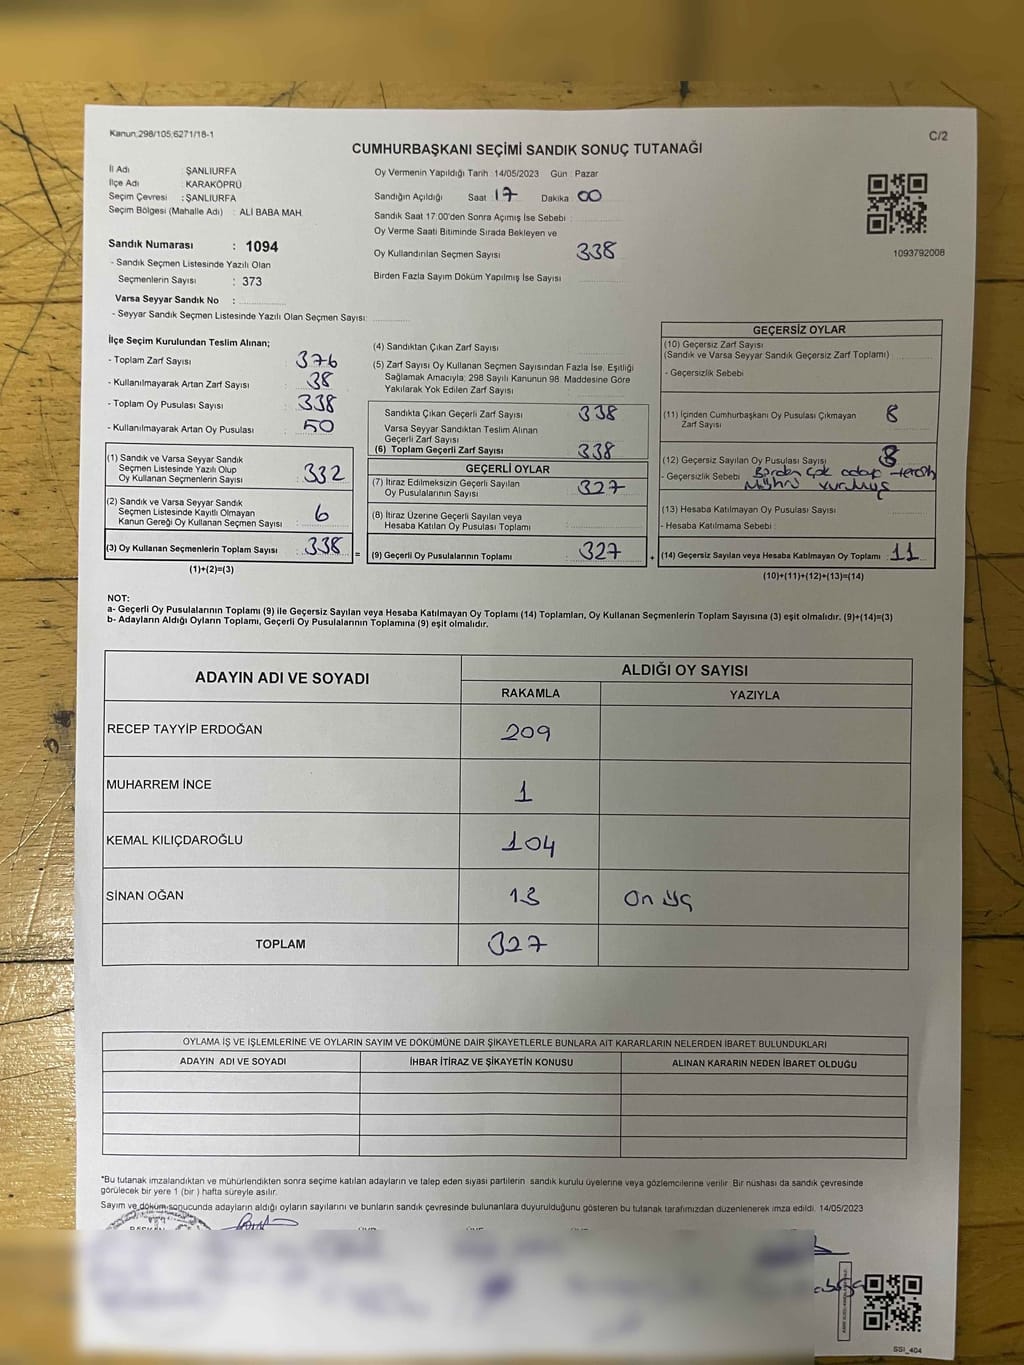 Kanun;298/105;6271/18-1
C/2
CUMHURBAŞKANI SEÇİMİ SANDIK SONUÇ TUTANAĞI
İl Adı : ŞANLIURFA
İlçe Adı : KARAKÖPRÜ
Seçim Çevresi : ŞANLIURFA
Seçim Bölgesi (Mahalle Adı) : ALİ BABA MAH.
Sandık Numarası : 1094
- Sandık Seçmen Listesinde Yazılı Olan
Seçmenlerin Sayısı : 373
Varsa Seyyar Sandık No :
- Seyyar Sandık Seçmen Listesinde Yazılı Olan Seçmen Sayısı:
Oy Vermenin Yapıldığı Tarih : 14/05/2023 Gün : Pazar
Sandığın Açıldığı Saat : 17 Dakika : 00
Sandık Saat 17:00'den Sonra Açımış İse Sebebi :
Oy Verme Saati Bitiminde Sırada Bekleyen ve
Oy Kullandırılan Seçmen Sayısı 338
Birden Fazla Sayım Döküm Yapılmış İse Sayısı :
1093792008
İlçe Seçim Kurulundan Teslim Alınan;
- Toplam Zarf Sayısı : 376
- Kullanılmayarak Artan Zarf Sayısı : 38
- Toplam Oy Pusulası Sayısı : 338
- Kullanılmayarak Artan Oy Pusulası : 50
(1) Sandık ve Varsa Seyyar Sandık
Seçmen Listesinde Yazılı Olup
Oy Kullanan Seçmenlerin Sayısı : 332
(2) Sandık ve Varsa Seyyar Sandık
Seçmen Listesinde Kayıtlı Olmayan
Kanun Gereği Oy Kullanan Seçmen Sayısı : 6
(3) Oy Kullanan Seçmenlerin Toplam Sayısı : 338 =
(1)+(2)=(3)
(4) Sandıktan Çıkan Zarf Sayısı
(5) Zarf Sayısı Oy Kullanan Seçmen Sayısından Fazla İse, Eşitliği
Sağlamak Amacıyla; 298 Sayılı Kanunun 98. Maddesine Göre
Yakılarak Yok Edilen Zarf Sayısı :
Sandıkta Çıkan Geçerli Zarf Sayısı : 338
Varsa Seyyar Sandıktan Teslim Alınan
Geçerli Zarf Sayısı :
(6) Toplam Geçerli Zarf Sayısı : 338
GEÇERLİ OYLAR
(7) İtiraz Edilmeksizin Geçerli Sayılan
Oy Pusulalarının Sayısı : 327
(8) İtiraz Üzerine Geçerli Sayılan veya
Hesaba Katılan Oy Pusulası Toplamı :
(9) Geçerli Oy Pusulalarının Toplamı : 327 +
GEÇERSİZ OYLAR
(10) Geçersiz Zarf Sayısı
(Sandık ve Varsa Seyyar Sandık Geçersiz Zarf Toplamı)
- Geçersizlik Sebebi :
(11) İçinden Cumhurbaşkanı Oy Pusulası Çıkmayan
Zarf Sayısı : 8
(12) Geçersiz Sayılan Oy Pusulası Sayısı :
- Geçersizlik Sebebi : Birden çok aday tercih
Mührü vurmuş
(13) Hesaba Katılmayan Oy Pusulası Sayısı :
- Hesaba Katılmama Sebebi :
(14) Geçersiz Sayılan veya Hesaba Katılmayan Oy Toplamı : 11
(10)+(11)+(12)+(13)=(14)
NOT:
a- Geçerli Oy Pusulalarının Toplamı (9) ile Geçersiz Sayılan veya Hesaba Katılmayan Oy Toplamı (14) Toplamları, Oy Kullanan Seçmenlerin Toplam Sayısına (3) eşit olmalıdır. (9)+(14)=(3)
b- Adayların Aldığı Oyların Toplamı, Geçerli Oy Pusulalarının Toplamına (9) eşit olmalıdır.
ADAYIN ADI VE SOYADI
ALDIĞI OY SAYISI
RAKAMLA YAZIYLA
RECEP TAYYİP ERDOĞAN 209
MUHARREM İNCE 1
KEMAL KILIÇDAROĞLU 104
SİNAN OĞAN 13 On üç
TOPLAM 327
OYLAMA İŞ VE İŞLEMLERİNE VE OYLARIN SAYIM VE DÖKÜMÜNE DAİR ŞİKAYETLERLE BUNLARA AİT KARARLARIN NELERDEN İBARET BULUNDUKLARI
ADAYIN ADI VE SOYADI İHBAR İTİRAZ VE ŞİKAYETİN KONUSU ALINAN KARARIN NEDEN İBARET OLDUĞU
*Bu tutanak imzalandıktan ve mühürlendikten sonra seçime katılan adayların ve talep eden siyasi partilerin sandık kurulu üyelerine veya gözlemcilerine verilir. Bir nüshası da sandık çevresinde
görülecek bir yere 1 (bir ) hafta süreyle asılır.
Sayım ve döküm sonucunda adayların aldığı oyların sayılarını ve bunların sandık çevresinde bulunanlara duyurulduğunu gösteren bu tutanak tarafımızdan düzenlenerek imza edildi. 14/05/2023
SSI_404